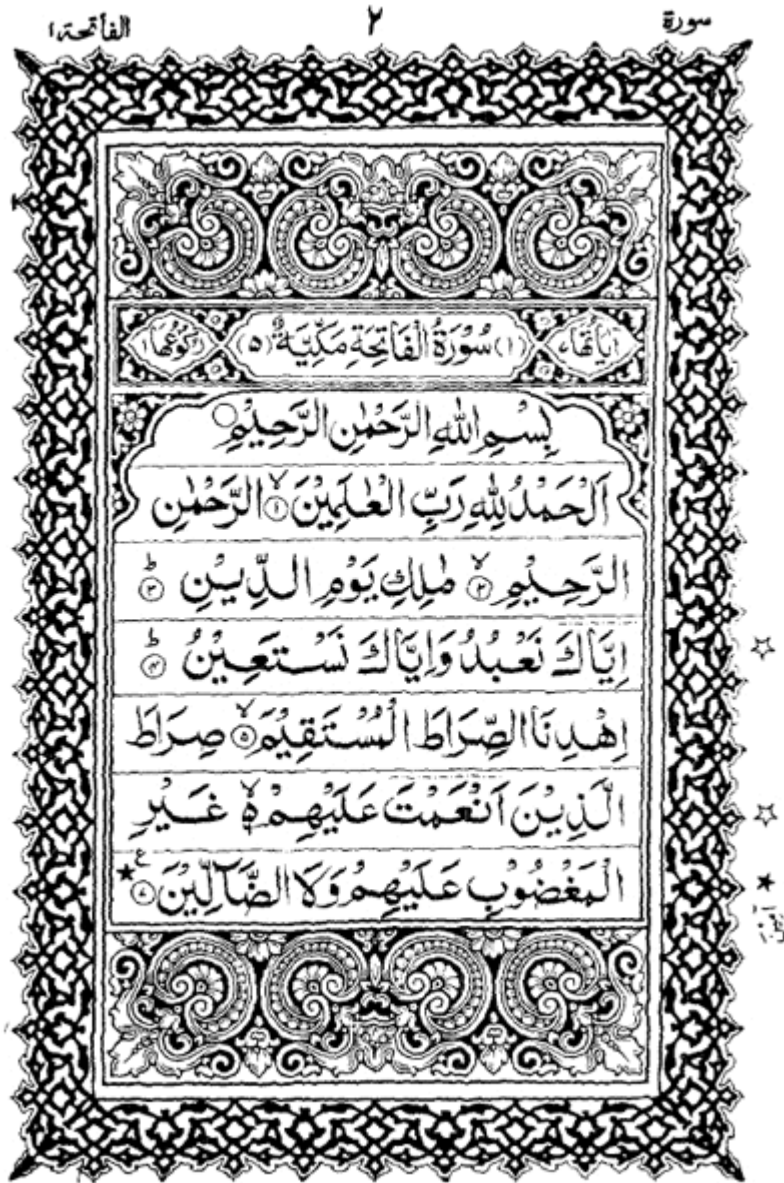 سورة ٢ الفاتحة ١
اٰیاتها ٧ (١) سُوْرَةُ الْفَاتِحَةِ مَكِّیَّةٌ (٥) رکوعها ١
بِسْمِ اللّٰهِ الرَّحْمٰنِ الرَّحِیْمِ
اَلْحَمْدُ لِلّٰهِ رَبِّ الْعٰلَمِیْنَۙ ١ الرَّحْمٰنِ
الرَّحِیْمِۙ ٢ مٰلِكِ یَوْمِ الدِّیْنِؕ ٣
اِیَّاكَ نَعْبُدُ وَاِیَّاكَ نَسْتَعِیْنُؕ ٤
اِهْدِنَا الصِّرَاطَ الْمُسْتَقِیْمَۙ ٥ صِرَاطَ
الَّذِیْنَ اَنْعَمْتَ عَلَیْهِمْ ۙ۬ غَیْرِ
الْمَغْضُوْبِ عَلَیْهِمْ وَلَا الضَّآلِّیْنَ ٧ ع